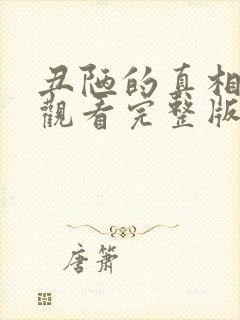 丑陋的真相
觀看完整版
唐簫